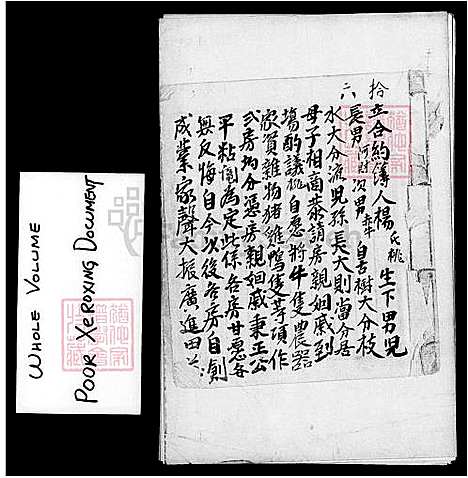 WHOLE VOLUME
POOR XEROXING DOCUMENT
拾
六
立合約簿人楊氏桃生下男兒
長男河財次男 自古樹大分枝
水大分流兒孫長大則當分居
母子相商恭請房親姻戚到
場酌議桃自愿將牛隻農器
家資雜物猪雞鴨隻等項作
弍房均分憑房親姻戚秉正公
平粘鬮為定此係各房甘愿各
無反悔自今以後各房自創
成業家聲大振廣進田